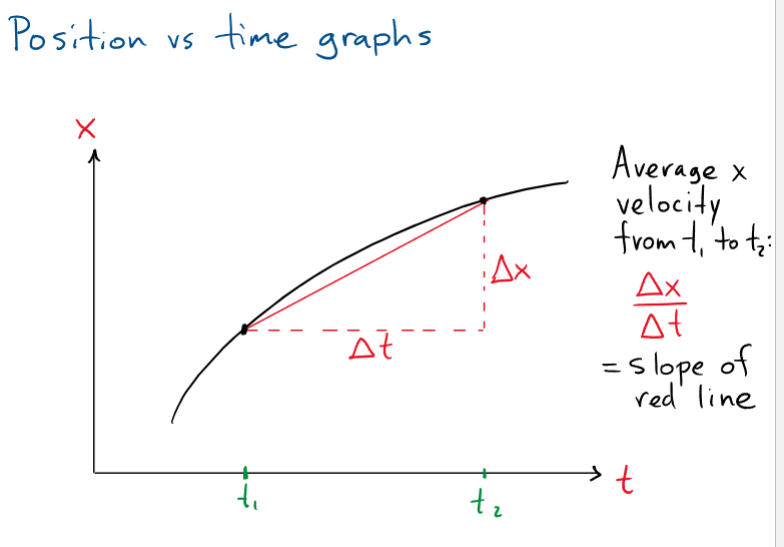 Position vs time graphs
x
Δx
Δt
t₁
t₂
t
Average x
velocity
from t₁ to t₂:
Δx
Δt
= slope of
red line